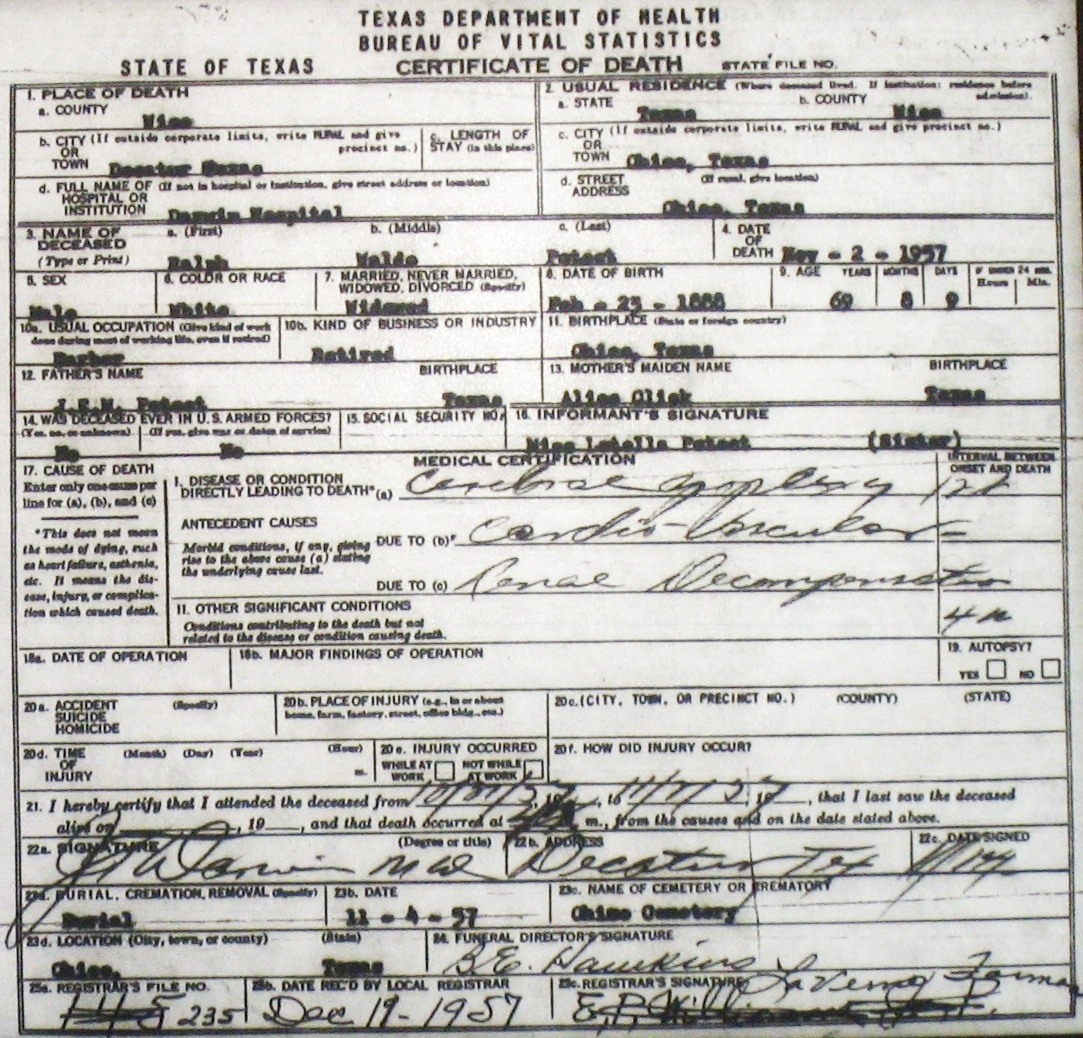 TEXAS DEPARTMENT OF HEALTH
BUREAU OF VITAL STATISTICS
STATE OF TEXAS CERTIFICATE OF DEATH STATE FILE NO.
1. PLACE OF DEATH
a. COUNTY
Wise
2. USUAL RESIDENCE (Where deceased lived. If institution: residence before admission).
a. STATE Texas b. COUNTY Wise
b. CITY (If outside corporate limits, write RURAL and give precinct no.)
OR
TOWN Decatur Texas
c. LENGTH OF
STAY (in this place)
c. CITY (If outside corporate limits, write RURAL and give precinct no.)
OR
TOWN Chico, Texas
d. FULL NAME OF (If not in hospital or institution, give street address or location)
HOSPITAL OR
INSTITUTION Darwin Hospital
d. STREET (If rural, give location)
ADDRESS
Chico, Texas
3. NAME OF DECEASED
(Type or Print)
a. (First) b. (Middle) c. (Last)
Ralph Waldo Poteet
4. DATE
OF
DEATH Nov - 2 - 1957
5. SEX
Male
6. COLOR OR RACE
White
7. MARRIED, NEVER MARRIED,
WIDOWED, DIVORCED (Specify)
Widowed
8. DATE OF BIRTH
Feb - 23 - 1888
9. AGE YEARS MONTHS DAYS IF UNDER 24 HRS.
Hours Min.
69 8 9
10a. USUAL OCCUPATION (Give kind of work
done during most of working life, even if retired)
Barber
10b. KIND OF BUSINESS OR INDUSTRY
Retired
11. BIRTHPLACE (State or foreign country)
Chico, Texas
12. FATHER'S NAME BIRTHPLACE
Poteet Texas
13. MOTHER'S MAIDEN NAME BIRTHPLACE
Alice Click Texas
14. WAS DECEASED EVER IN U.S. ARMED FORCES?
(Yes, no, or unknown) (If yes, give war or dates of service)
No No
15. SOCIAL SECURITY NO.
16. INFORMANT'S SIGNATURE
Miss Poteet (Sister)
MEDICAL CERTIFICATION
INTERVAL BETWEEN
ONSET AND DEATH
17. CAUSE OF DEATH
Enter only one cause per
line for (a), (b), and (c)
*This does not mean
the mode of dying, such
as heart failure, asthenia,
etc. It means the dis-
ease, injury, or complica-
tion which caused death.
I. DISEASE OR CONDITION
DIRECTLY LEADING TO DEATH* (a) Cerebral Apoplexy
ANTECEDENT CAUSES
Morbid conditions, if any, giving
rise to the above cause (a) stating
the underlying cause last.
DUE TO (b) Cardio-Vascular-
DUE TO (c) Renal Decompensation
II. OTHER SIGNIFICANT CONDITIONS
Conditions contributing to the death but not
related to the disease or condition causing death.
18a. DATE OF OPERATION
18b. MAJOR FINDINGS OF OPERATION
19. AUTOPSY?
YES NO
20a. ACCIDENT (Specify)
SUICIDE
HOMICIDE
20b. PLACE OF INJURY (e.g., in or about
home, farm, factory, street, office bldg., etc.)
20c. (CITY, TOWN, OR PRECINCT NO.) (COUNTY) (STATE)
20d. TIME (Month) (Day) (Year) (Hour)
OF
INJURY m.
20e. INJURY OCCURRED
WHILE AT WORK NOT WHILE AT WORK
20f. HOW DID INJURY OCCUR?
21. I hereby certify that I attended the deceased from , 19 , to , 19 , that I last saw the deceased
alive on , 19 , and that death occurred at m., from the causes and on the date stated above.
22a. SIGNATURE (Degree or title)
22b. ADDRESS
Decatur Tex
22c. DATE SIGNED
23a. BURIAL, CREMATION, REMOVAL (Specify)
Burial
23b. DATE
11 - 4 - 57
23c. NAME OF CEMETERY OR CREMATORY
Chico Cemetery
23d. LOCATION (City, town, or county) (State)
Chico, Texas
24. FUNERAL DIRECTOR'S SIGNATURE
B.E. Hawkins
25a. REGISTRAR'S FILE NO.
235
25b. DATE REC'D BY LOCAL REGISTRAR
Dec 19-1957
25c. REGISTRAR'S SIGNATURE